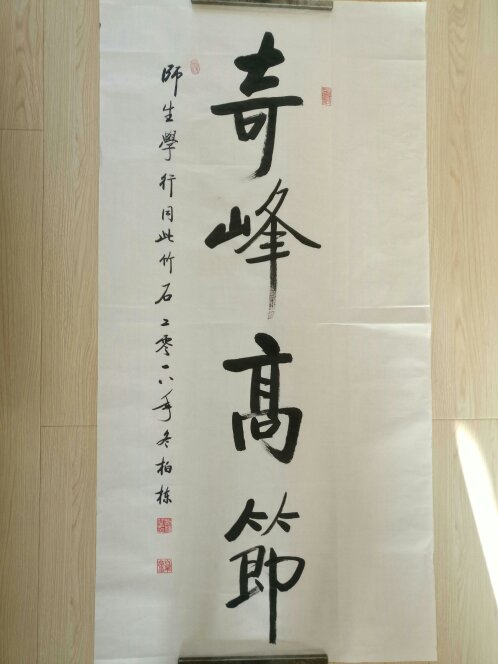 奇峰高節
師生學行同此竹石二零一八年冬柏栋